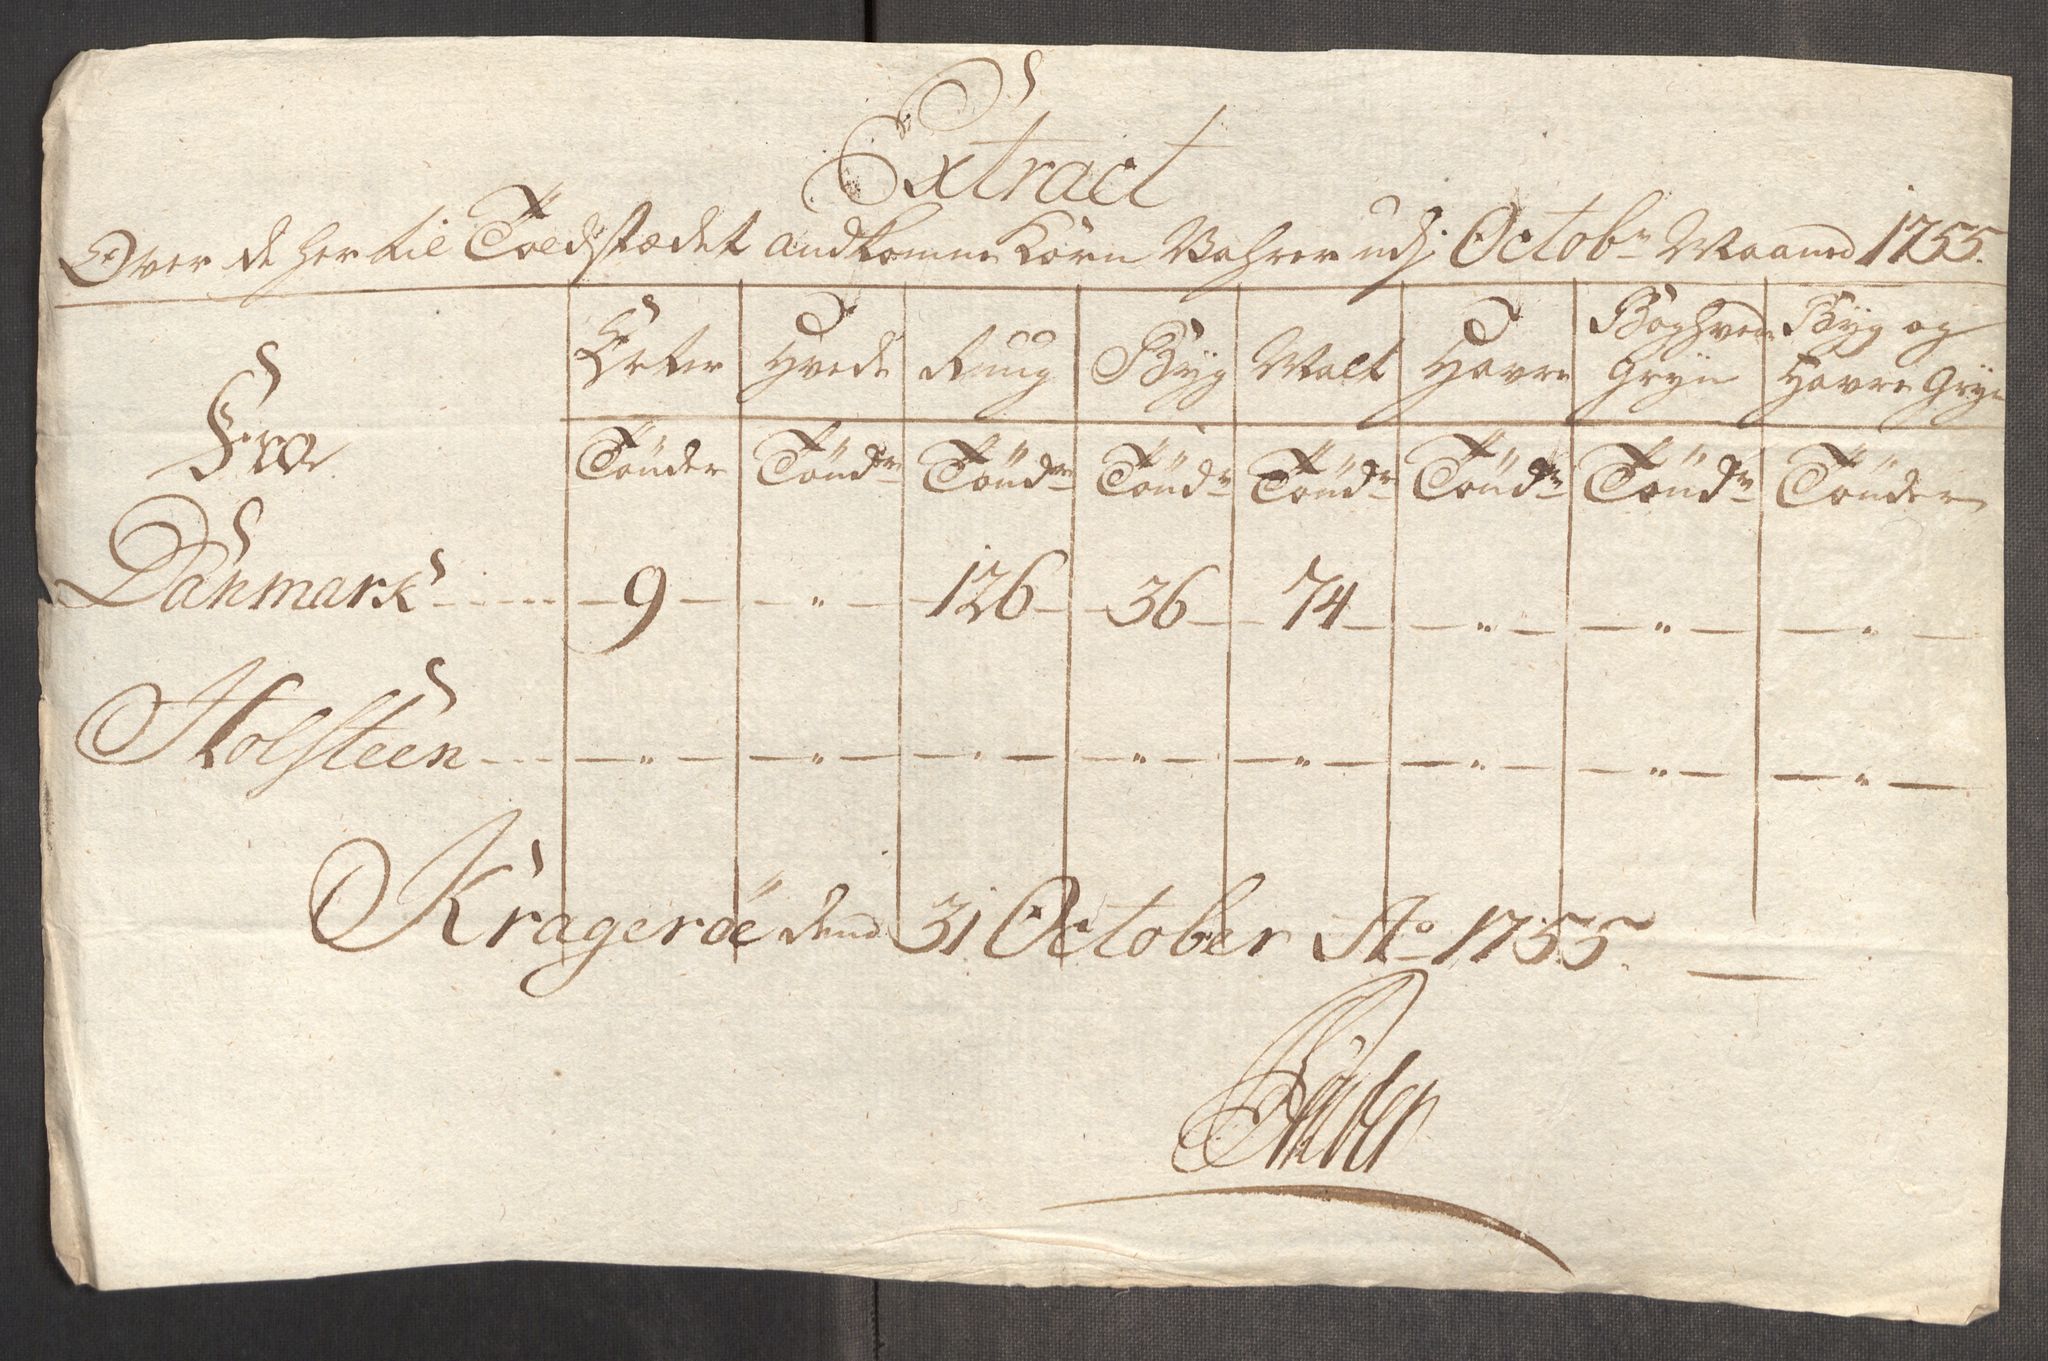 Extract
Over de her til Toldstædet andkomne Korn Vahrer udj Octobr Maaned 1755.
Fra Erter Hvede Rug Byg Malt Havre Boghvede Gryn Byg og Havre Gryn
Tönder Töndr Töndr Töndr Töndr Töndr Töndr Tönder
Danmark 9 " 126 36 74 " " "
Holsteen " " " " " " " "
Krageröe den 31 October Ao 1755.